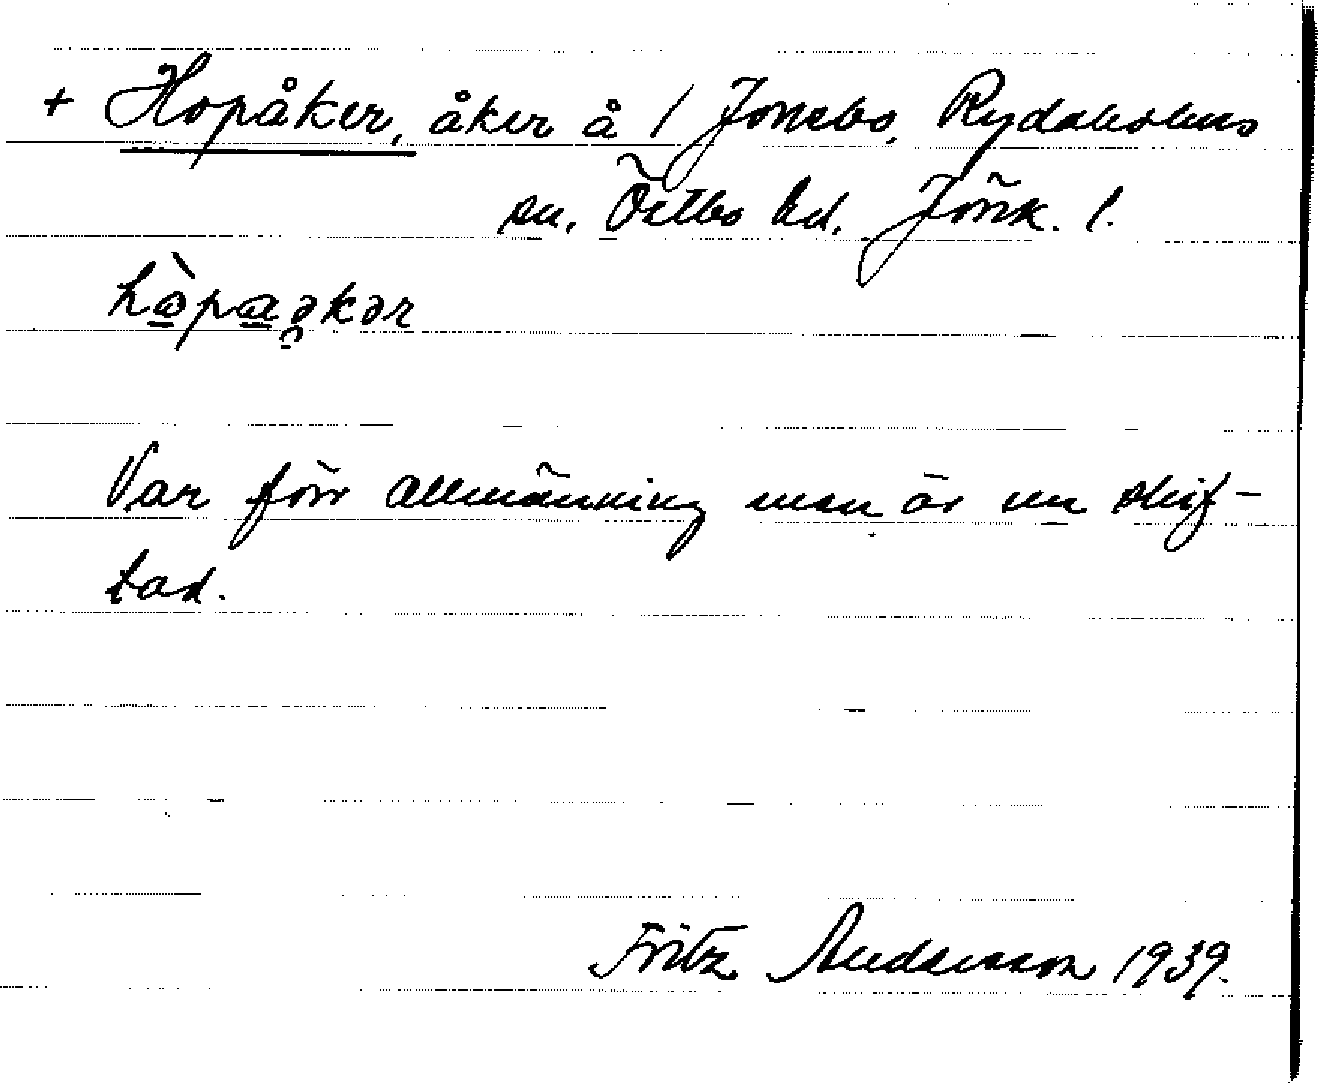 + Hopåker, åker å 1 Jonsbo, Rydaholms
sn, Östbo hd. Jönk. l.
Var förr allmänning men är nu skif-
tad.
Fritz Andersson 1939.